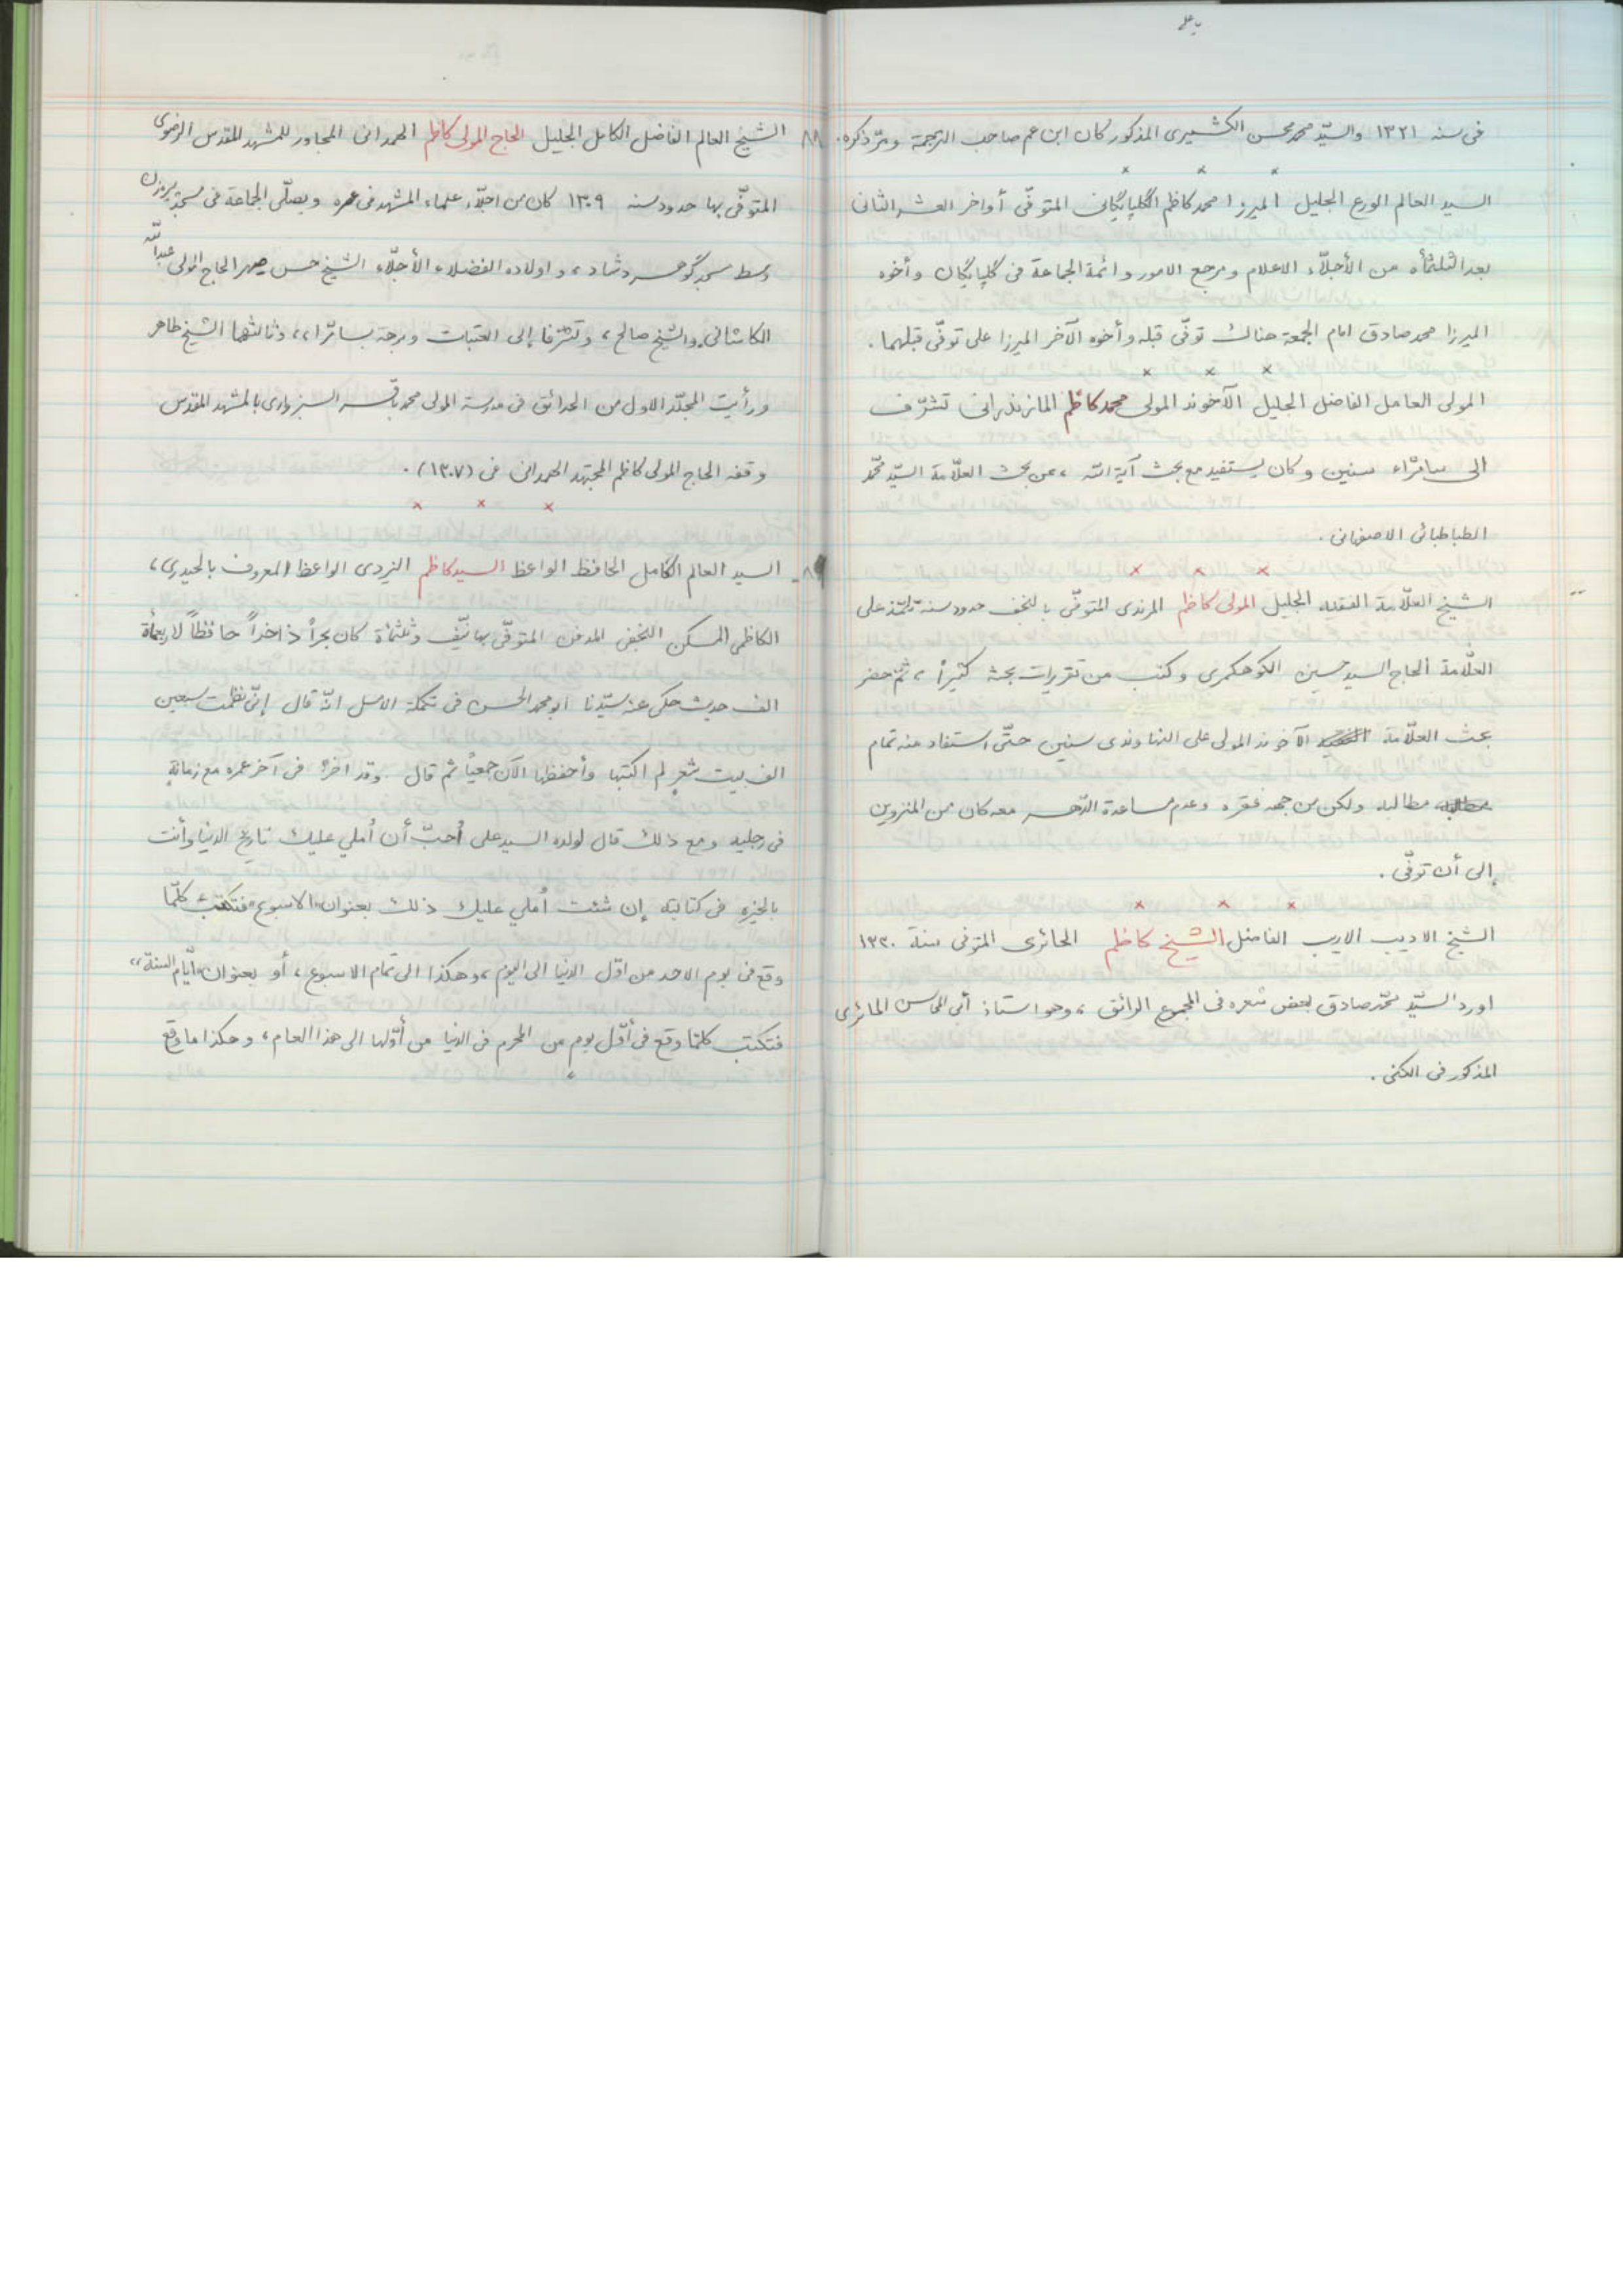 فى سنه ١٣٢١ والسيّد محمد محسن الكشميرى المذكور كان ابن عم صاحب الترجمة ومرّ ذكره.
× × ×
السيد العالم الورع الجليل الميرزا محمد كاظم الگلپايگانى المتوفّى أواخر العشر الثانى
بعد الثلثمأة من الأجلّاء الاعلام ومرجع الامور وائمة الجماعة فى گلپايگان وأخوه
الميرزا محمد صادق امام الجمعة هناك توفّى قبله وأخوه الآخر الميرزا على توفّى قبلهما.
× × ×
المولى العامل الفاضل الجليل الآخوند المولى محمد كاظم المازندرانى تشرّف
الى سامرّاء سنين وكان يستفيد مع بحث آية الله، عن بحث العلّامة السيّد محمّد
الطباطبائى الاصفهانى.
× × ×
الشيخ العلّامة الفقيه الجليل المولى كاظم المرندى المتوفّى بالنجف حدود سنة تلمّذ على
العلّامة الحاج السيد حسين الكوهكمرى وكتب من تقريرات بحثه كثيراً، ثمّ حضر
بحث العلّامة الآخوند المولى على النهاوندى سنين حتّى استفاد منه تمام
مطالبه ولكن من جهه فقره وعدم مساعدة الدّهر معه كان من المنزوين
إلى أن توفّى.
× × ×
الشيخ الاديب الاريب الفاضل الشيخ كاظم الحائرى المتوفى سنة ١٣٣٠
اورد السيّد محمّد صادق بعض شعره فى المجموع الرائق، وهو استاذ أبى المحاسن الحائرى
المذكور فى الكنى.
٨٨ الشيخ العالم الفاضل الكامل الجليل الحاج المولى كاظم الهمدانى المجاور للمشهد المقدس الرضوى
المتوفّى بها حدود سنه ١٣٠٩ كان من اجلّاء علماء المشهد فى عصره ويصلّى الجماعة فى مسجد پيرزن
وسط مسجد گوهرشاد، واولاده الفضلاء الأجلّاء الشيخ حسن صهر الحاج المولى عبدالله
الكاشانى والشيخ صالح، وتشرّفا إلى العتبات وبرهة بسامرّاء، وثالثهما الشيخ طاهر
ورأيت المجلّد الاول من الحدائق فى مدرسة المولى محمد باقر السبزوارى بالمشهد المقدس
وقفه الحاج المولى كاظم المجتهد الهمدانى فى (١٣٠٧).
× × ×
٨٩- السيد العالم الكامل الحافظ الواعظ السيد كاظم اليزدى الواعظ المعروف بالحيدرى،
الكاظمى المسكن النجفى المدفن المتوفّى بها نيّف وثلثمأة كان بحراً ذاخراً حافظاً لاربعمأة
الف حديث حكى عنه سيّدنا ابو محمد الحسن فى تكملة الامل انّه قال إنّى نظمت سبعين
الف بيت شعر لم اكتبها وأحفظها الآن جميعاً ثم قال وقد فى آخر عمره مع زمانة
فى رجليه ومع ذلك قال لولده السيد على اُحبّ أن اُملي عليك تاريخ الدنيا وأنت
بالخيره فى كتابته إن شئت اُملي عليك ذلك بعنوان «الاسبوع» فتكتب كلّما
وقع فى يوم الاحد من اوّل الدنيا الى اليوم، وهكذا الى تمام الاسبوع، أو بعنوان «أيّام السنة»
فتكتب كلّما وقع فى أوّل يوم من المحرم فى الدنيا من أوّلها الى هذا العام، وهكذا ما وقع